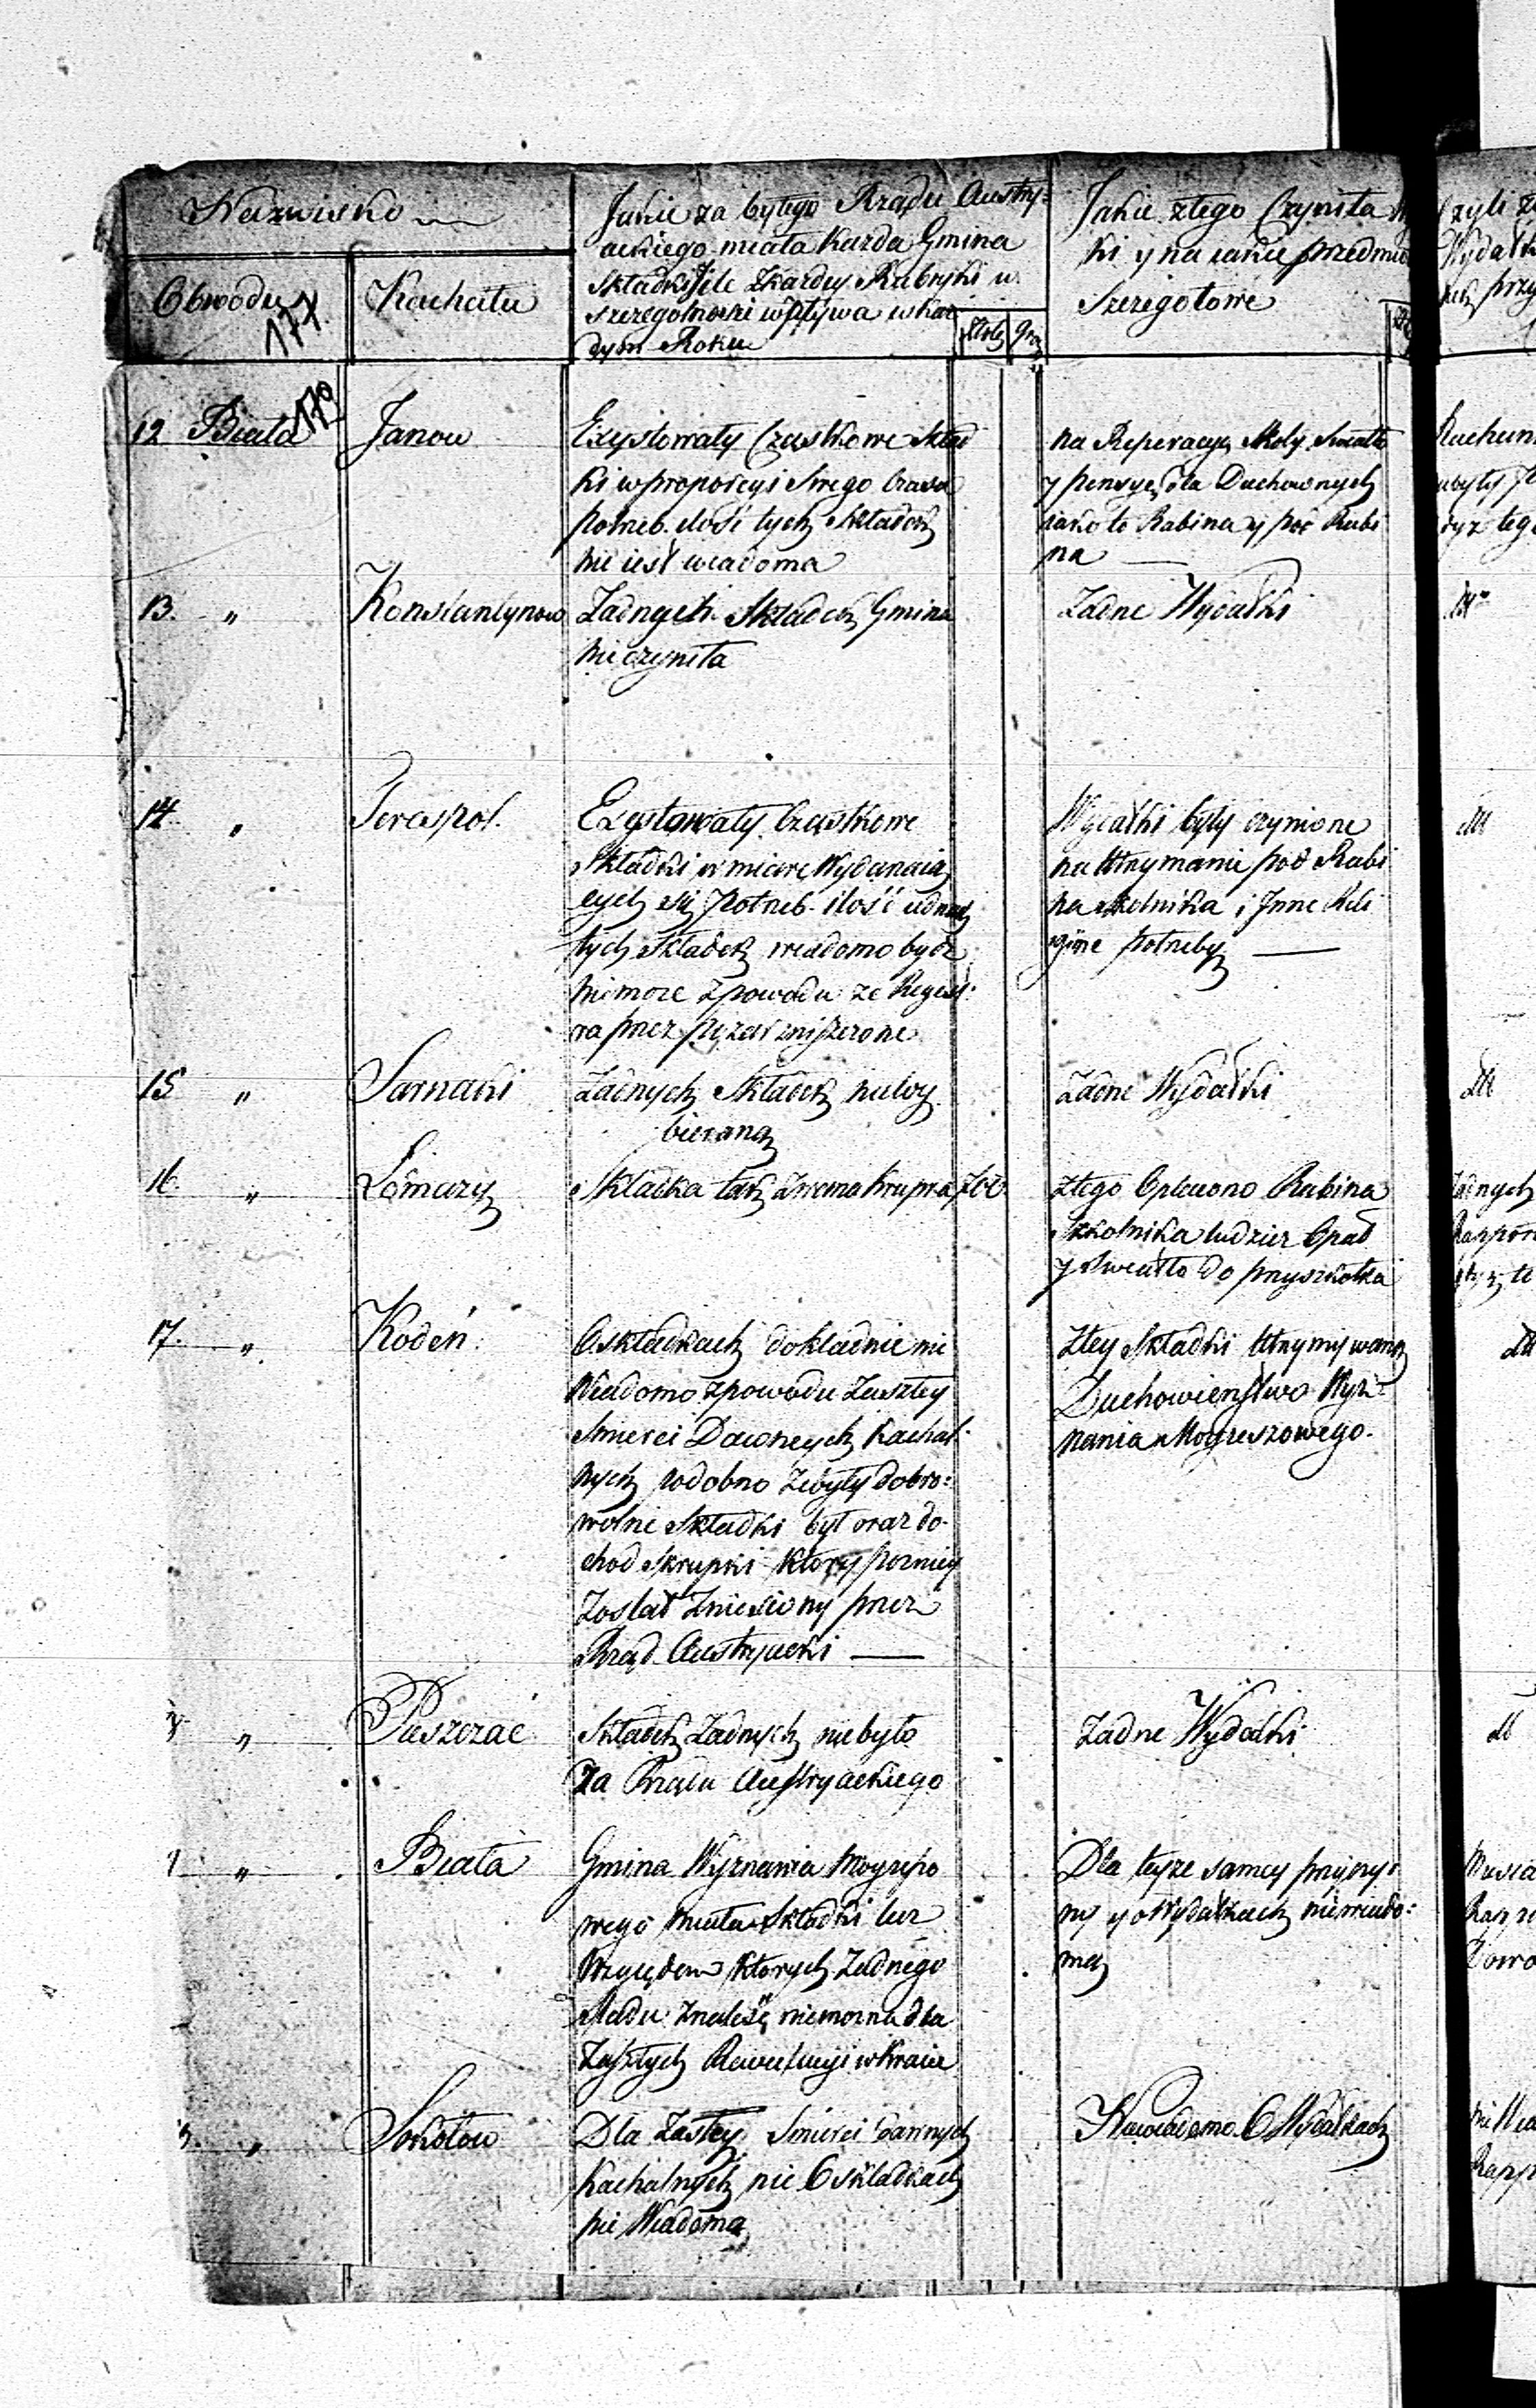 Nazwisko
Obwodu
Kachału
177.
179
Jakie za byłego Rządu Austry=
ackiego miała Każda Gmina
Składki Jle zkażdey Rubryki w
szczegolności wpływa wkaż
dym Roku
Złote
gro
Jakie ztego Czyniła
ki y na iakie przedmio
szczegołowe
12 Biała
Janow
Exystowały Cząstkowe Skład
ki w proporcyi Swego Czasu
potrzeb. ilość tych Składek
nie iest wiadoma
na Reperacyę Skoły Swiatło
y pensyę dla Duchownych
iako to Rabina y pod Rabi
na
13. "
Konstantynow
Żadnych Składek Gmina
nieczyniła
Żadne Wydatki
14 "
Teraspol.
Exystowały Cząstkowe
Składki w miarę Wydarzaią
cych się Potrzeb. ilość iednak
tych Składek wiadomo bydz
niemoże zpowodu że Regest
ra przez pożar zniszczone
Wydatki były czynione
na utrzymanie pod Rabi
na szkolnika i Jnne Reli
gijne potrzeby
15 "
Sarnaki
Żadnych Składek niewy
bierano
Żadne Wydatki
16 "
Łomazy
Składka tak Zwana Krupka
ztego Opłacono Rabina
Szkolnika tudzież Opał
y Swiatło do przyszkołka
17. "
Kodeń.
O składkach dokładnie nie
Wiadomo zpowodu Zaszłey
Smierci Dawnych Kachal=
nych podobno że były dobro=
wolne Składki był oraz do=
chod Skrupki Który pozniey
Został Zniesiony przez
Rząd Austryacki
Ztey Składki utrzymywano
Duchowieństwo Wyz=
nania Moyżeszowego.
"
Piszczac
Składek Żadnych niebyło
Za Rządu Austryackiego
Żadne Wydatki
"
Biała
Gmina Wyznania Moyżeszo
wego miała Składki lecz
Względem Których Żadnego
sladu znaleść niemożna dla
Zaszłych Rewolucyi w Kraiu
Dla teyże samey przyczy=
ny y o Wydatkach niewiado=
mo
"
Sokołow
Dla Zaszłey Smierci dawnych
Kachalnych nic O składkach
nie Wiadomo
Niewiadomo O Wydatkach